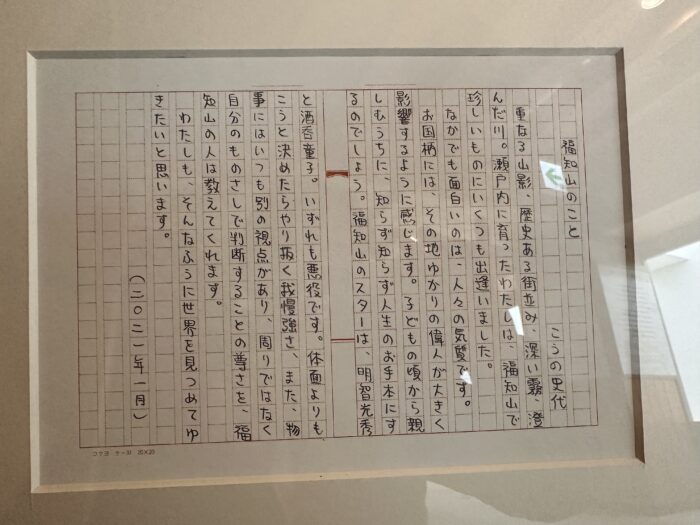 福知山のこと
こうの史代
重なる山影、歴史ある街並み、深い霧、澄
んだ川。瀬戸内に育ったわたしは、福知山で
珍しいものにいくつも出逢いました。
なかでも面白いのは、人々の気質です。
お国柄には、その地ゆかりの偉人が大きく
影響するように感じます。子どもの頃から親
しむうちに、知らず知らず人生のお手本にす
るのでしょう。福知山のスターは、明智光秀
と酒呑童子。いずれも悪役です。体面よりも
こうと決めたらやり抜く我慢強さ、また、物
事にはいつも別の視点があり、周りではなく
自分のものさしで判断することの尊さを、福
知山の人は教えてくれます。
わたしも、そんなふうに世界を見つめてゆ
きたいと思います。
(二〇二一年一月)
コクヨ ケ-31 20×20